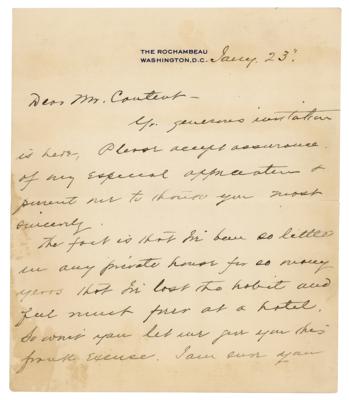 THE ROCHAMBEAU
WASHINGTON, D.C. Jany. 23d
Dear Mr. Content –
Yr. generous invitation
is here. Please accept assurance
of my especial appreciation &
permit me to thank you most
sincerely.
The fact is that I've been so little
in any private house for so many
years that I've lost the habit and
feel much freer at a hotel.
So won't you let me give you this
frank excuse. I am sure you